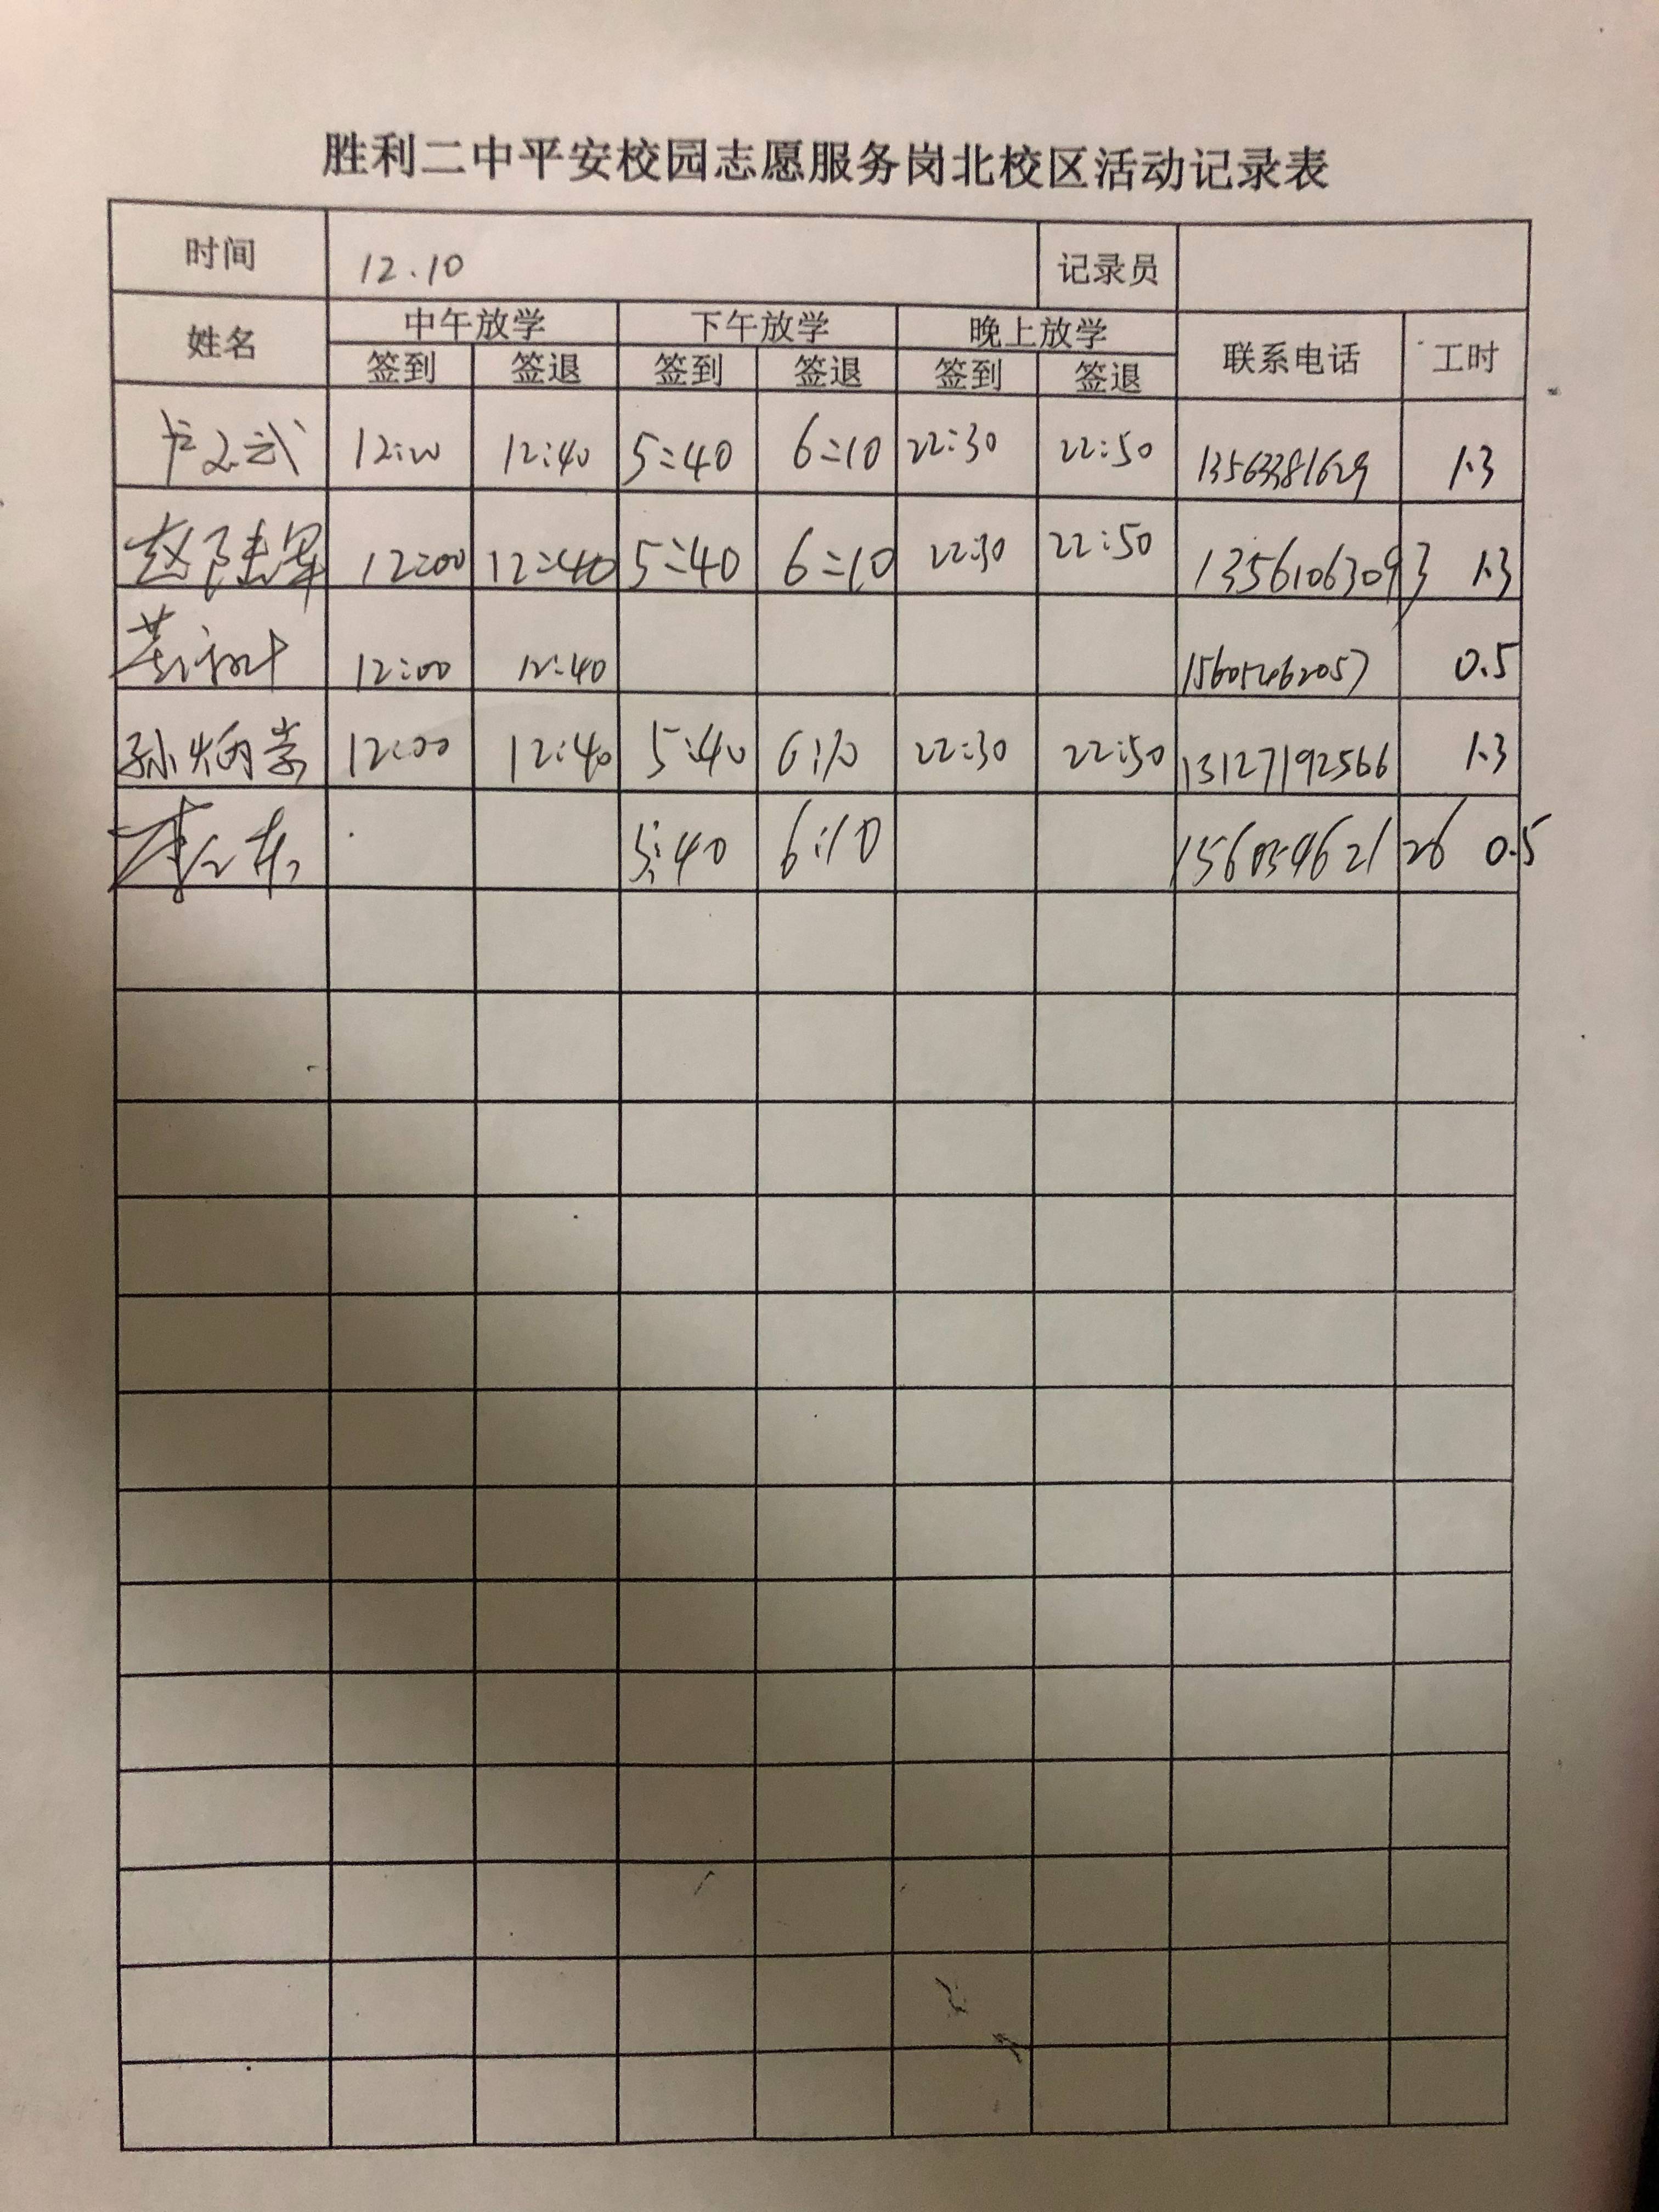 胜利二中平安校园志愿服务岗北校区活动记录表
时间 12.10 记录员
姓名 中午放学 下午放学 晚上放学 联系电话 工时
签到 签退 签到 签退 签到 签退
12:00 12:40 5:40 6:10 22:30 22:50 13563381629 1.3
12:00 12:40 5:40 6:10 22:30 22:50 13561063093 1.3
12:00 12:40 15605462057 0.5
孙炳崇 12:00 12:40 5:40 6:10 22:30 22:50 13127192566 1.3
5:40 6:10 15605462126 0.5